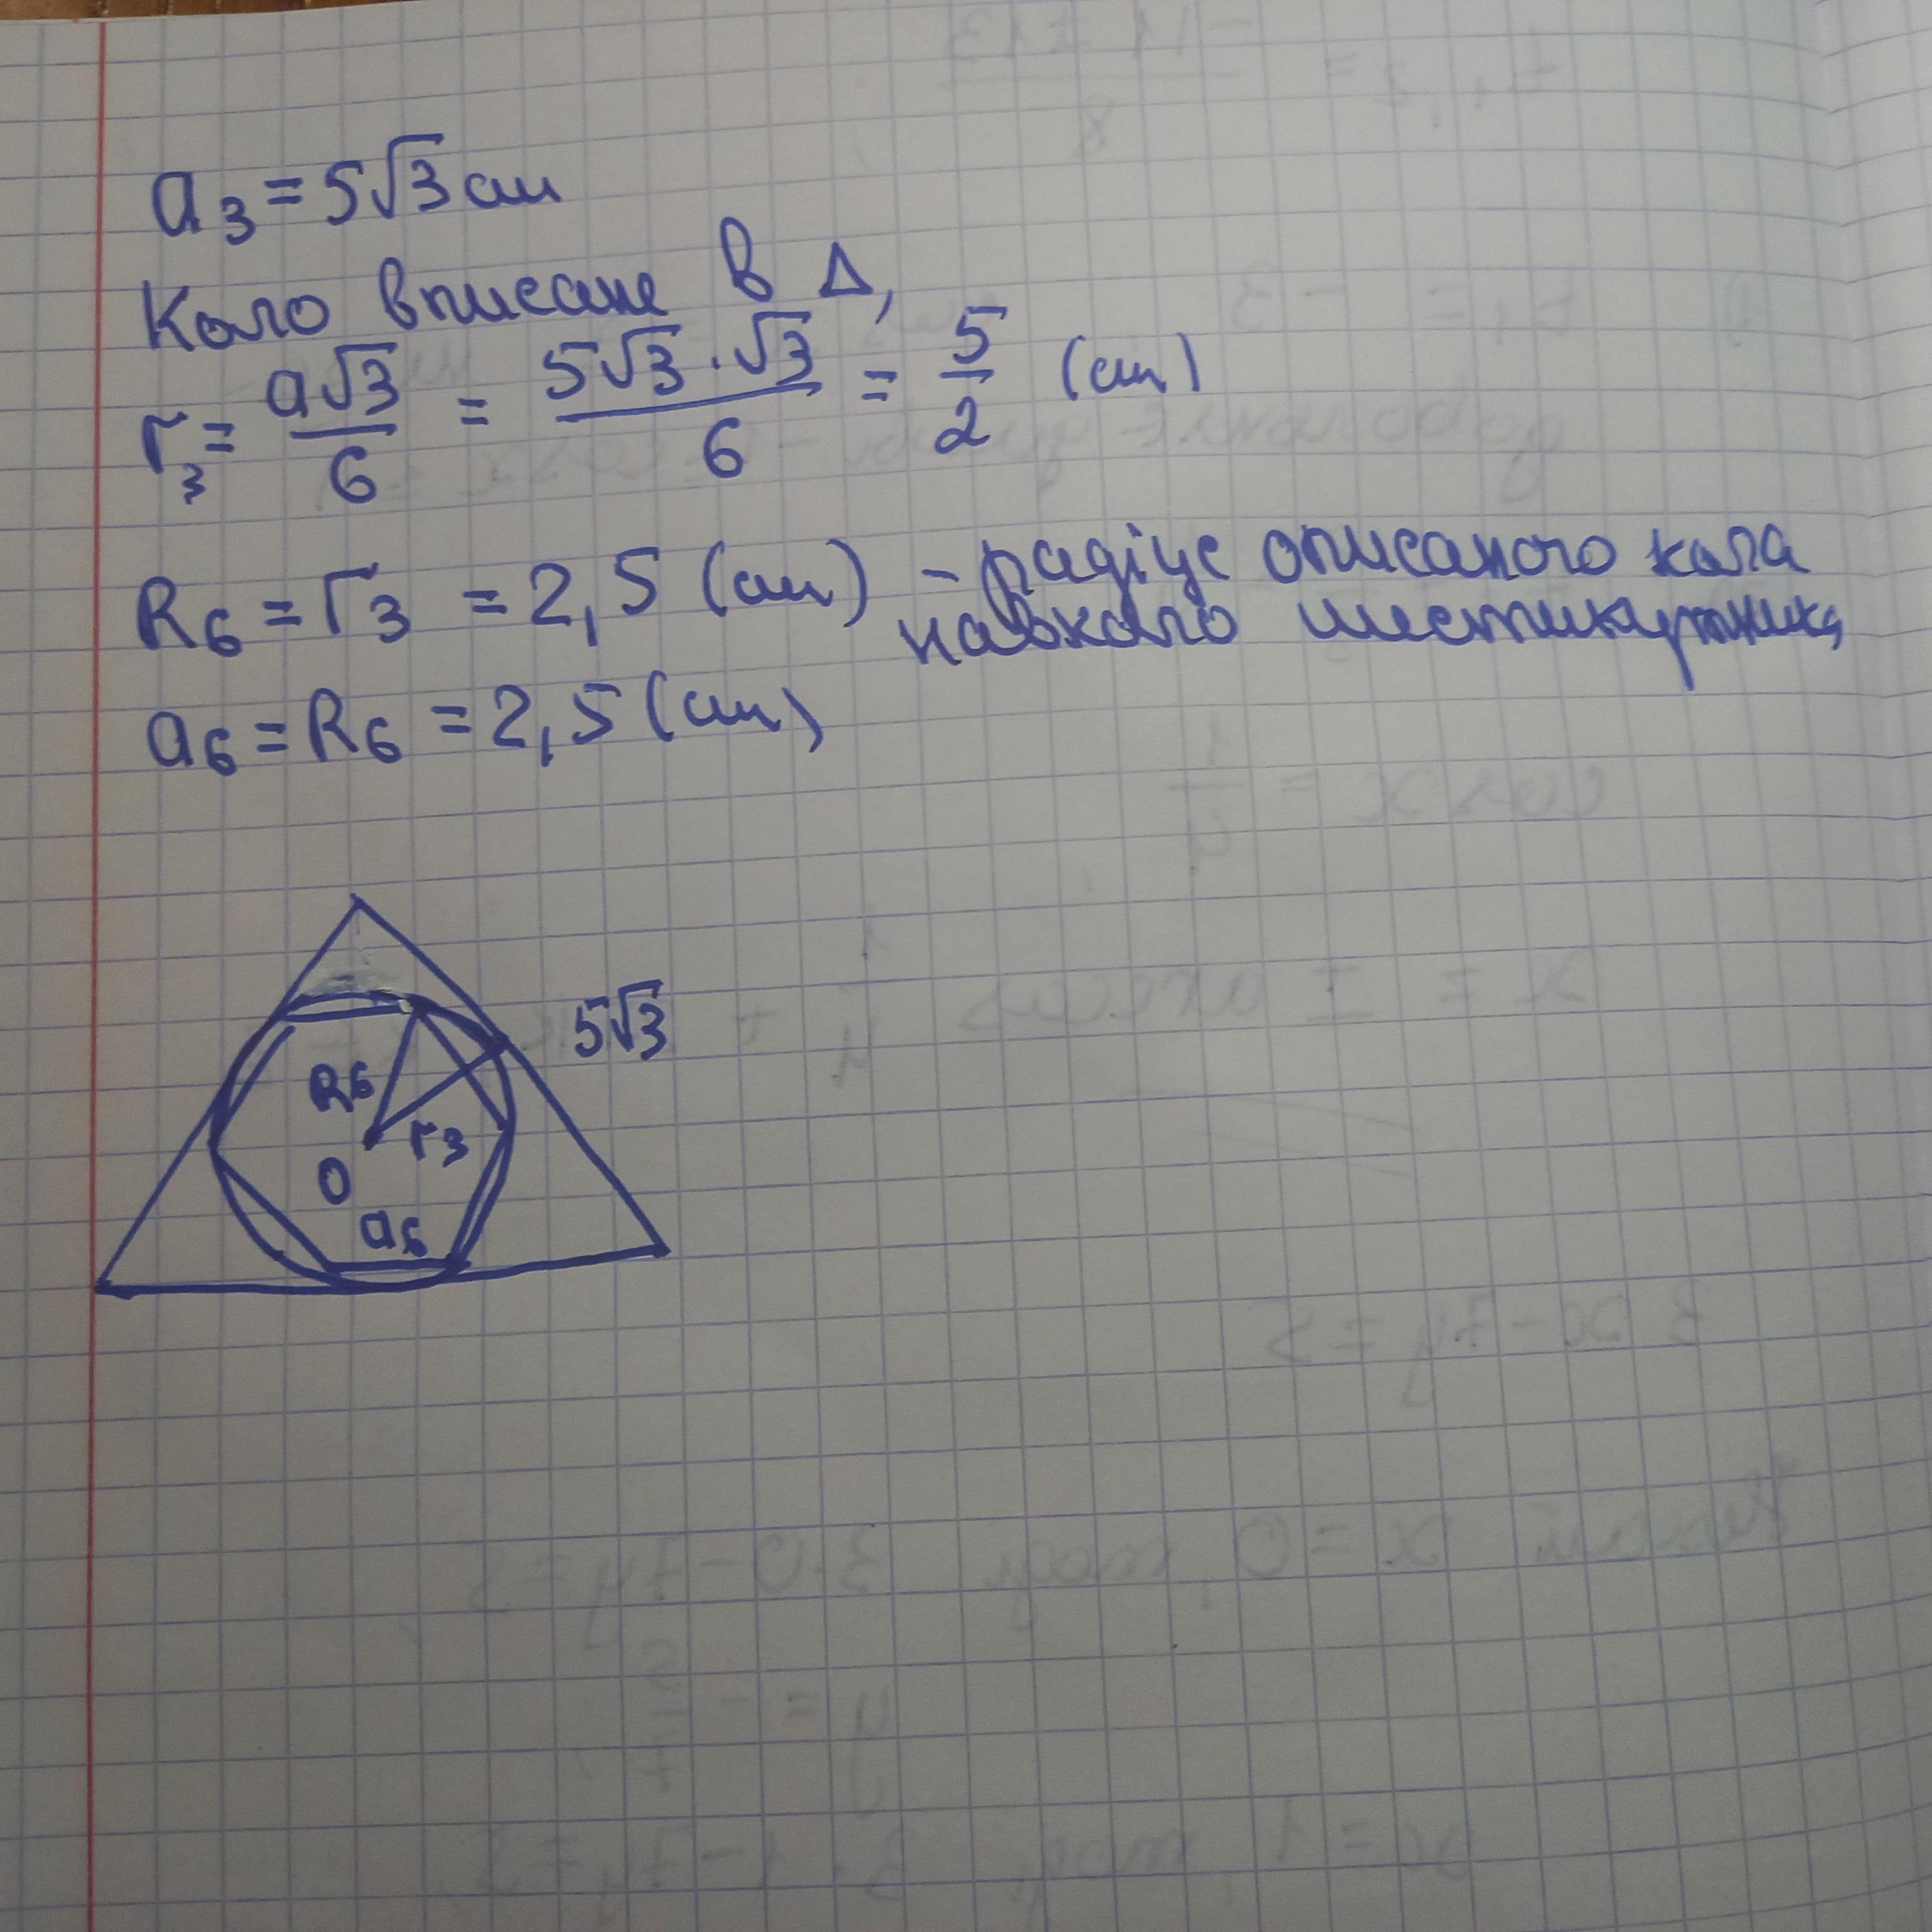 a₃ = 5√3 см
Коло вписане в Δ,
r₃ = a√3/6 = 5√3·√3/6 = 5/2 (см)
R₆ = r₃ = 2,5 (см) – радіус описаного кола
навколо шестикутника
a₆ = R₆ = 2,5 (см)
5√3
R₆
r₃
O
a₆